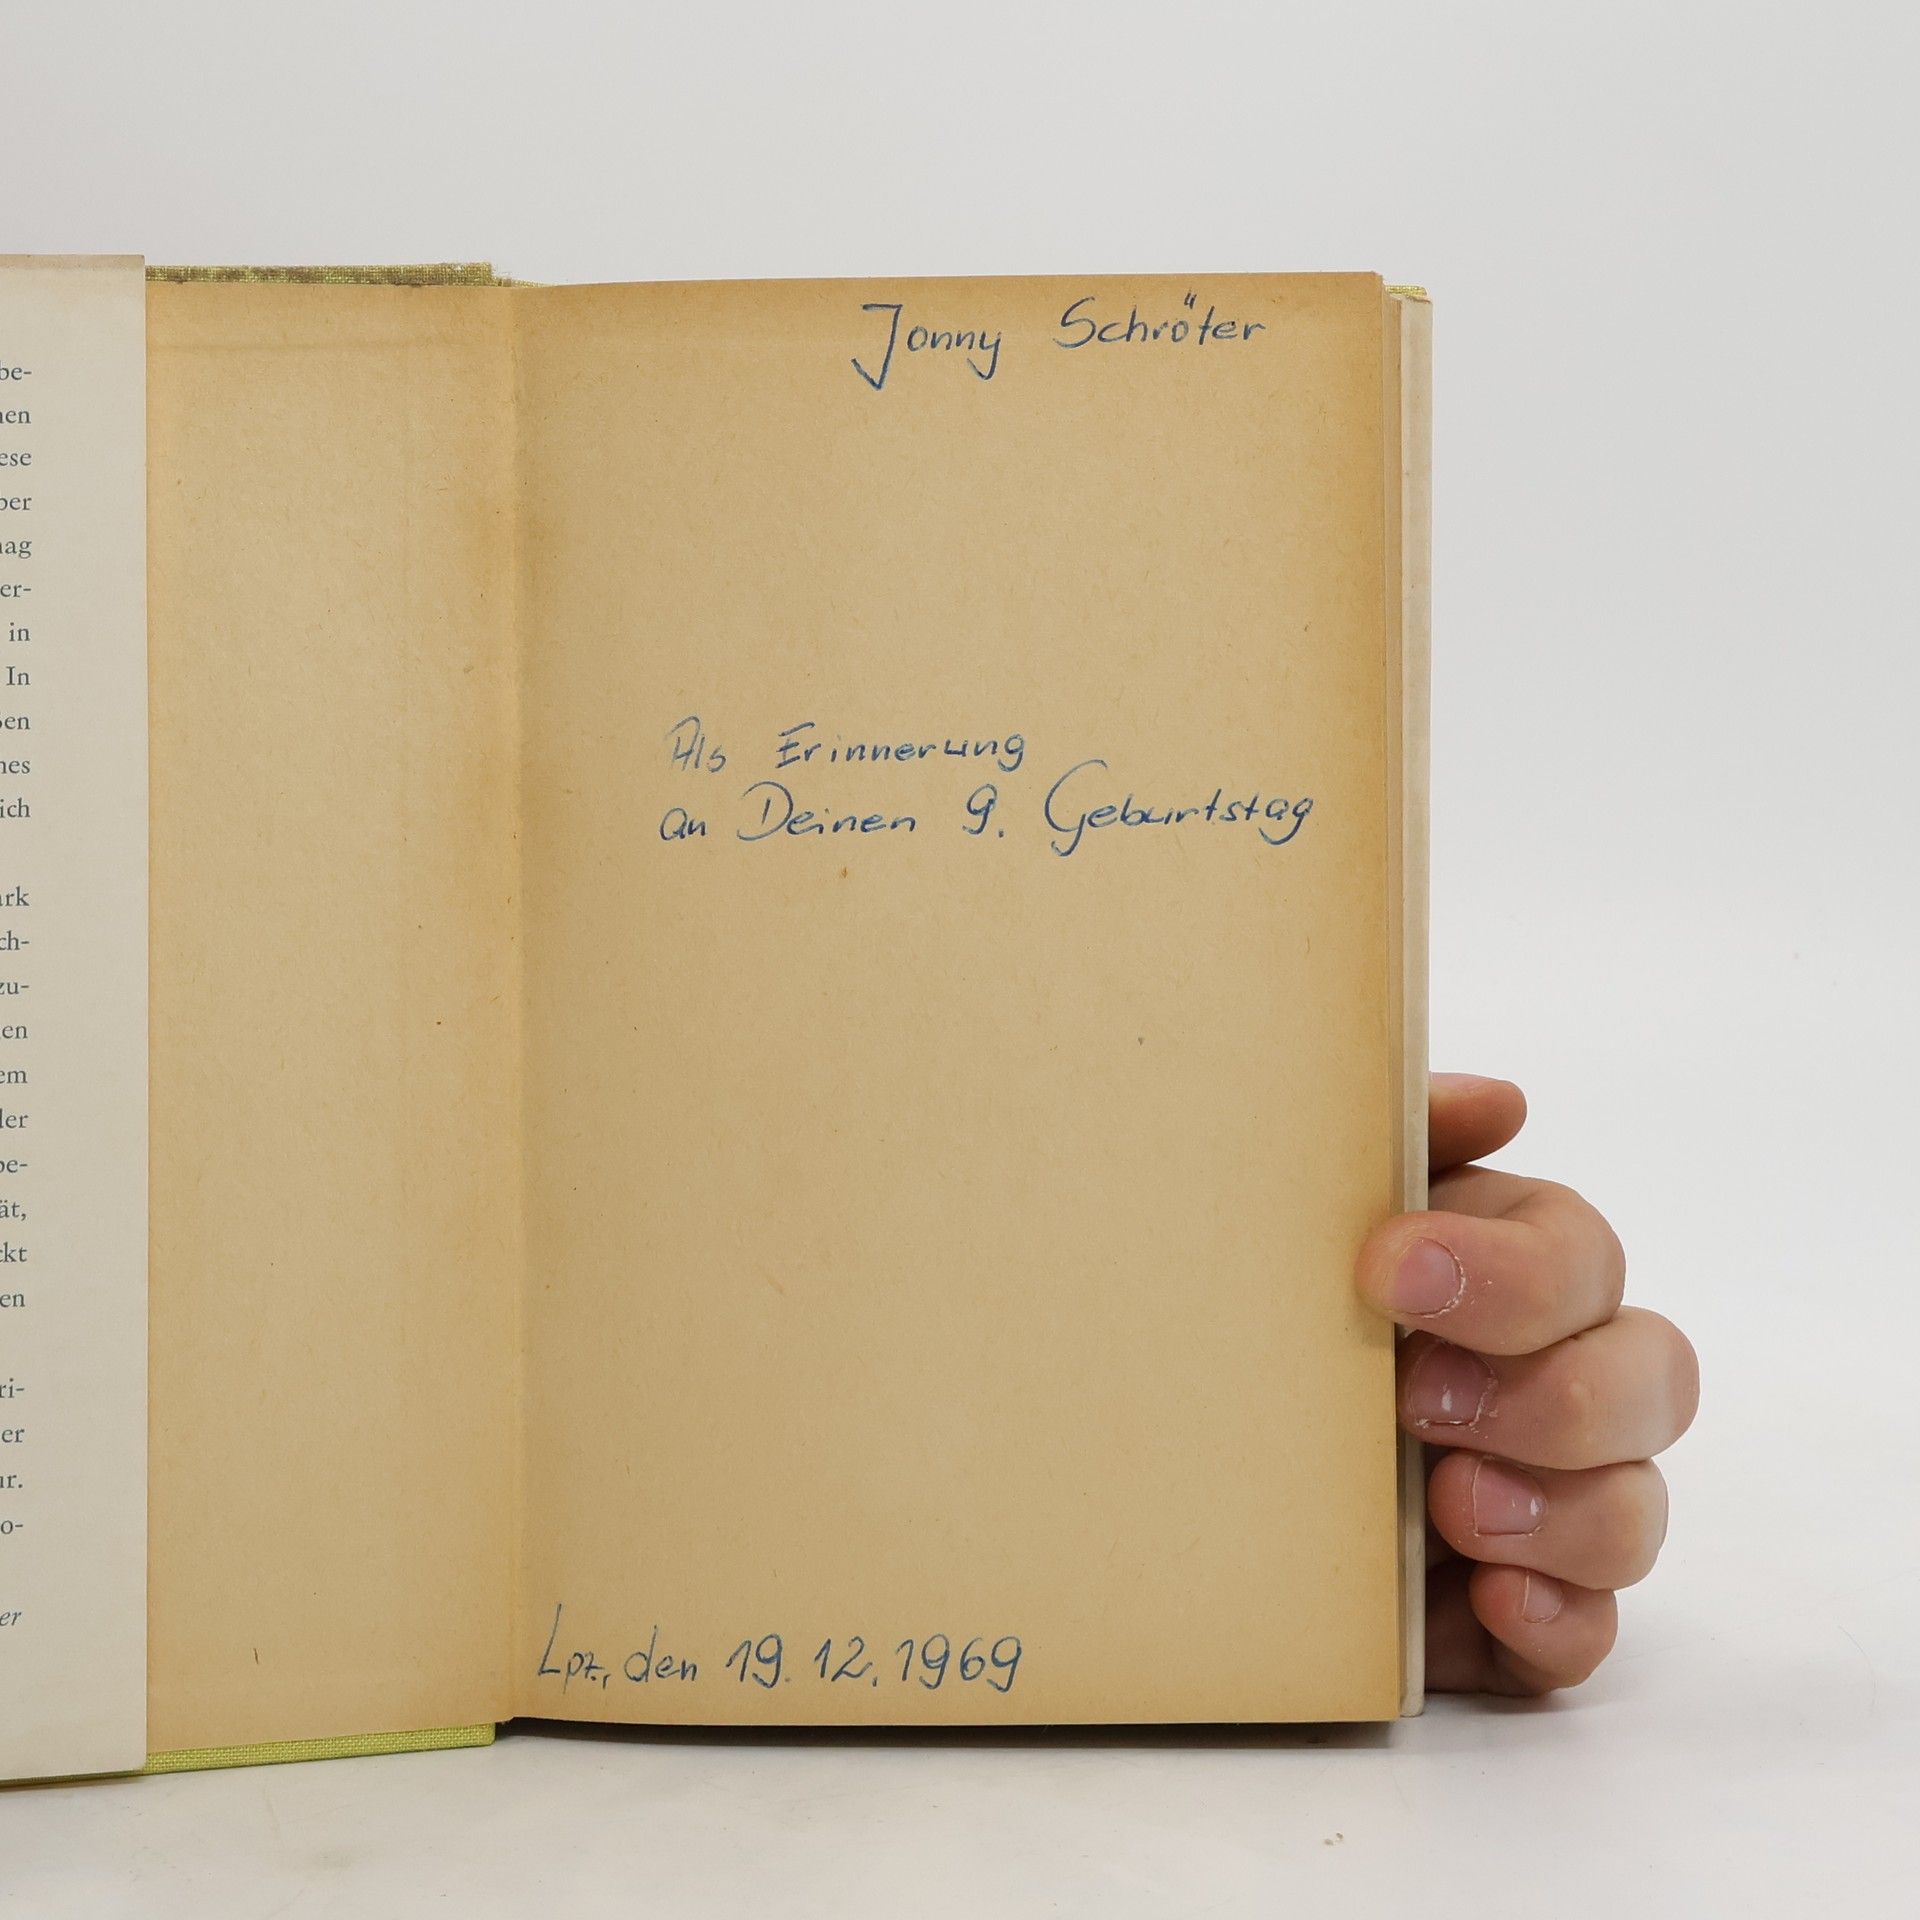 be-
nen
ese
ber
mag
er-
in
In
ßen
nes
ich
ark
ch-
zu-
en
em
der
be-
ät,
ckt
en
ri-
er
ur.
o-
er
Jonny Schröter
Als Erinnerung
an Deinen 9. Geburtstag
Lpz., den 19.12.1969